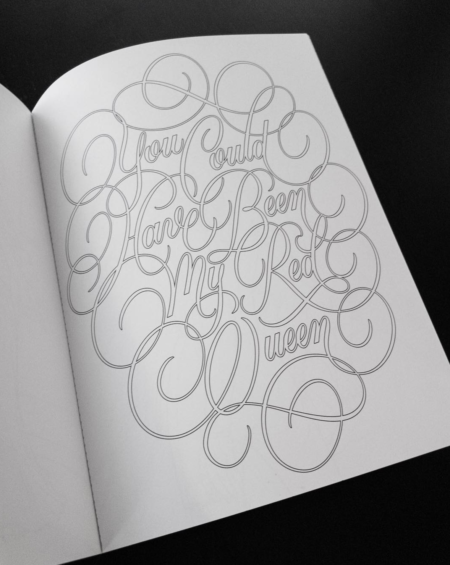 You Could
Have Been
My Red
Queen